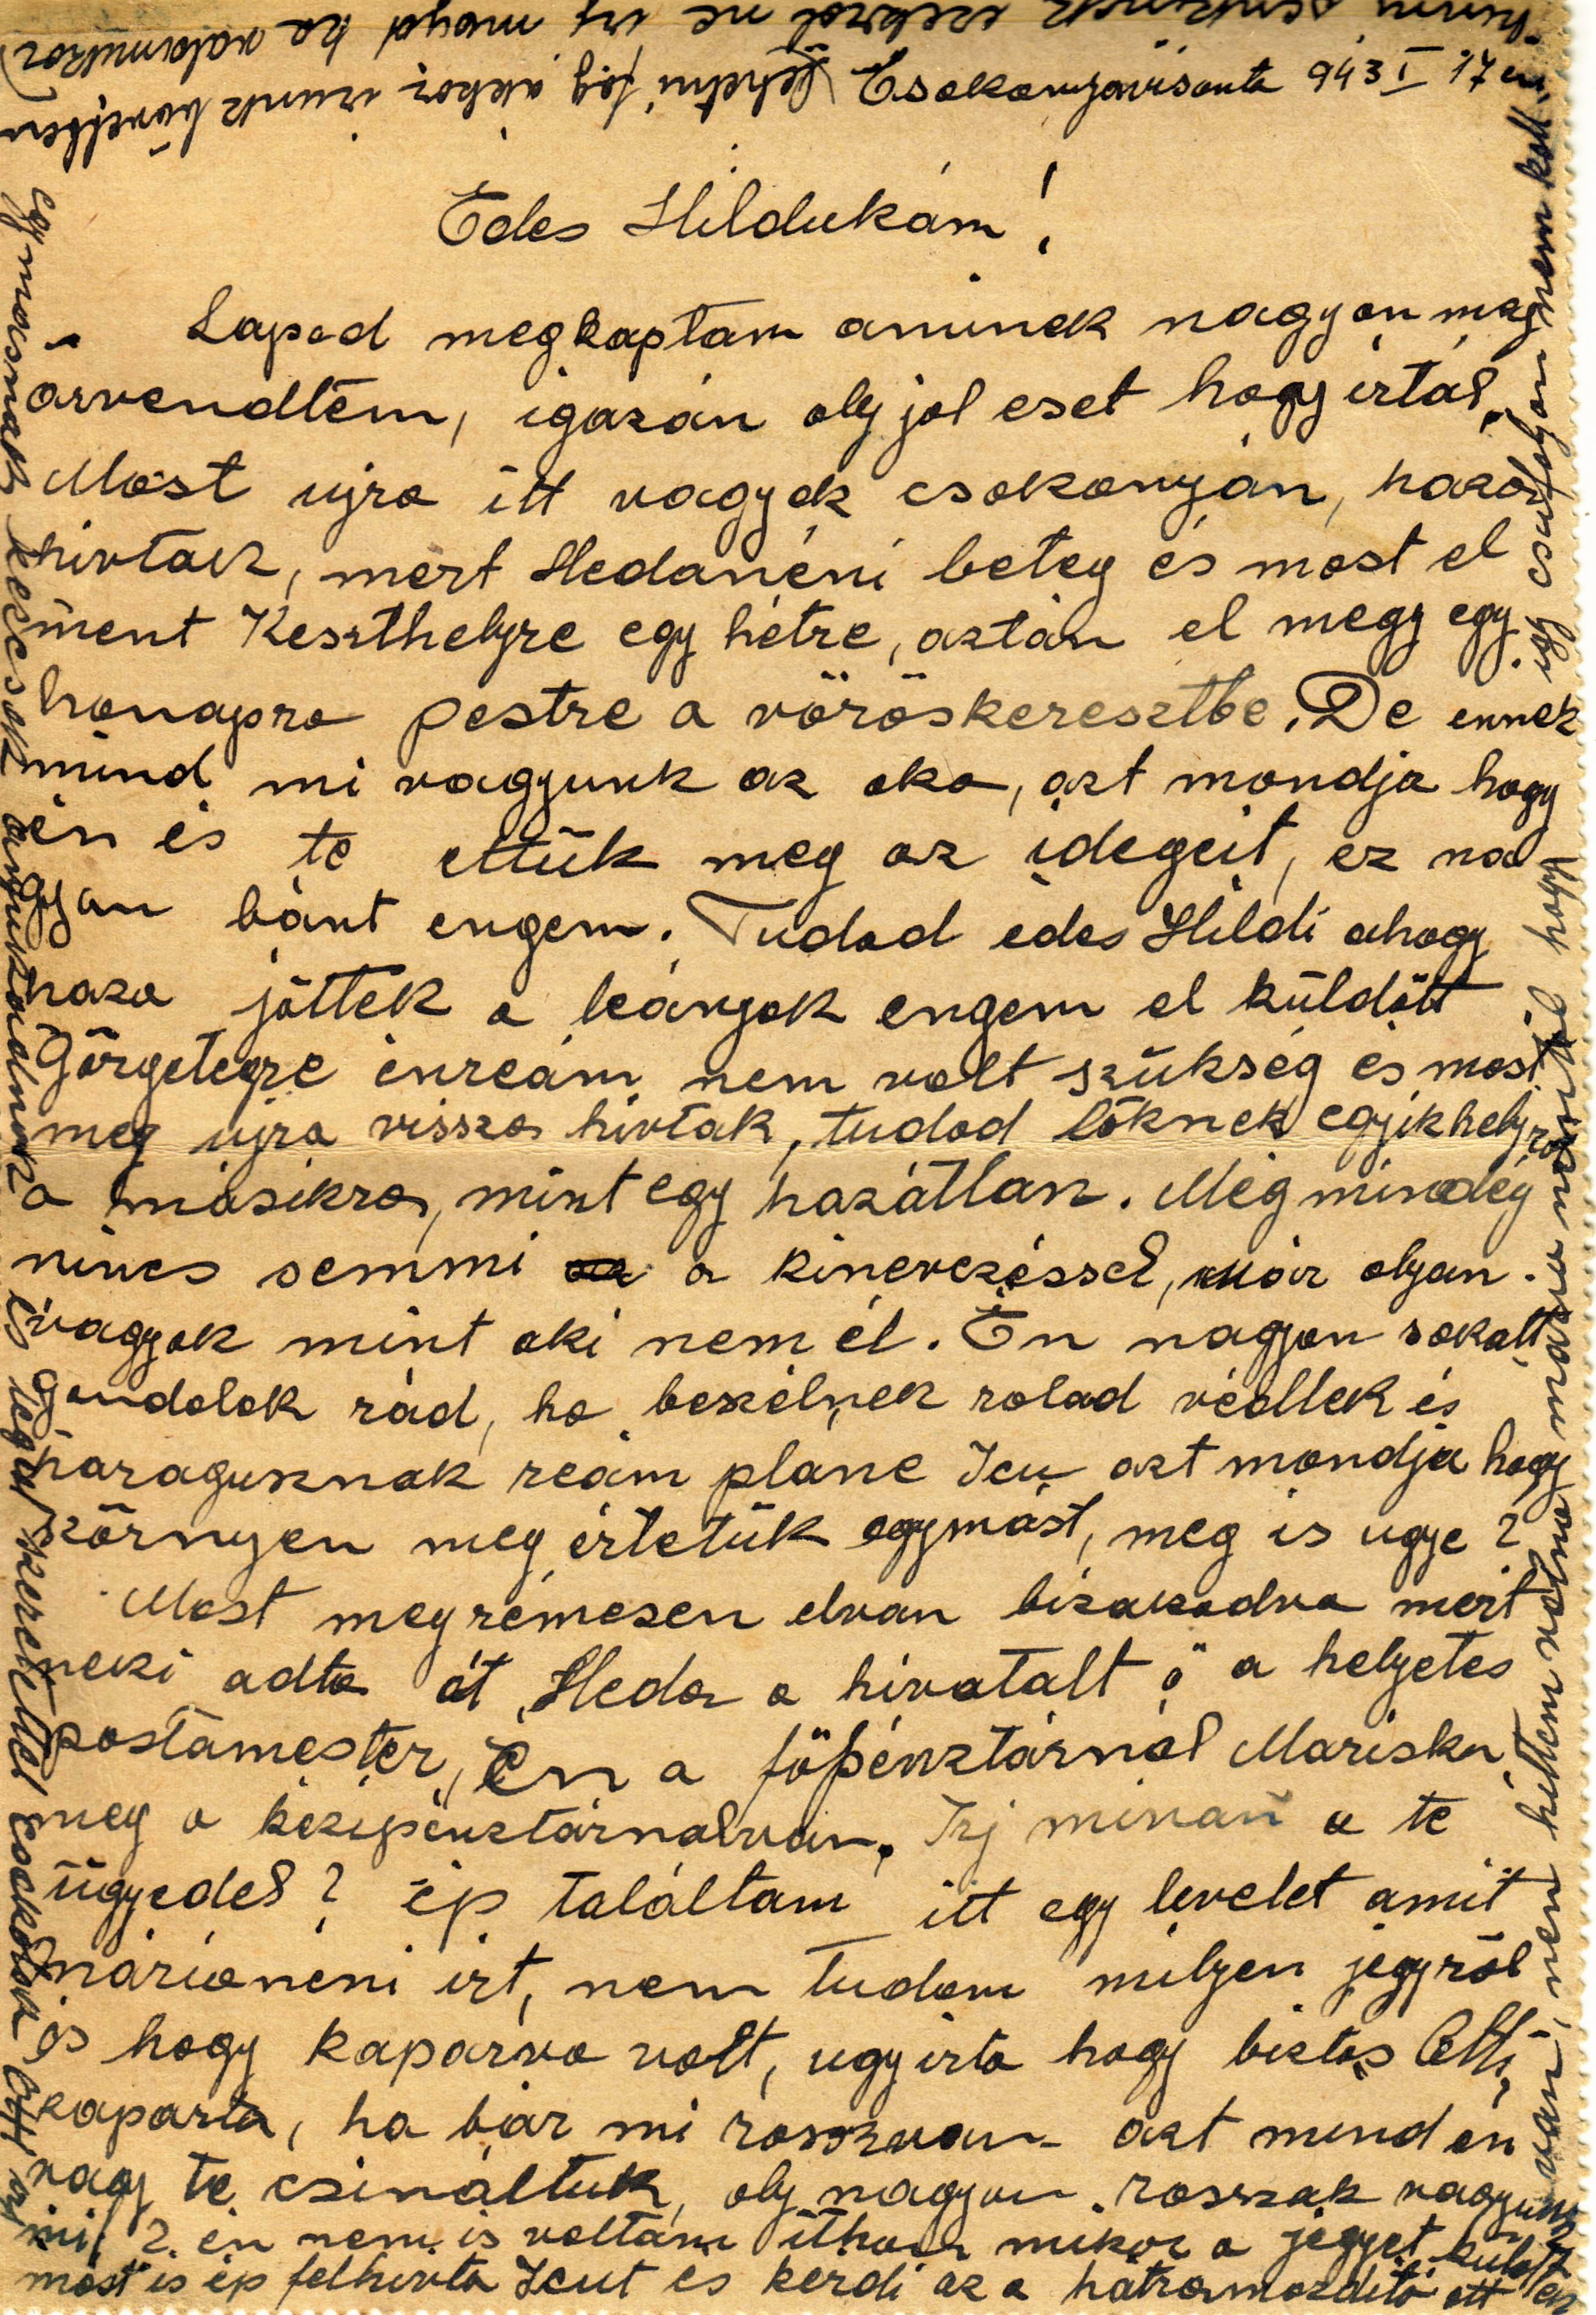 Csokonyavisonta 943 I 17 én.
Édes Hildukám!
Lapod megkaptam aminek nagyon meg
örvendtem, igazán oly jol eset hogy irtál.
Most ujra itt vagyok csokonyán, haza
hivtak, mert Hedanéni beteg és most el
ment Keszthelyre egy hétre, aztán el megy egy
honapra pestre a vöröskeresztbe. De ennek
mind mi vagyunk az oka, azt mondja hogy
én és te ettük meg az idegeit, ez na
gyon bánt engem. Tudod édes Hildi ahogy
haza jöttek a leányok engem el küldött
Görgetegre énreám nem volt szükség és most
meg ujra vissza hivtak, tudod löknek egyikhelyre
a másikra, mint egy hazátlan. Még mindég
nincs semmi a kinevezéssel, már olyan
vagyok mint aki nem él. Én nagyon sokatt
gondolok rád, ha beszélnek rolad védlek és
haragusznak reám pláne Icu azt mondja hogy
szörnyen meg értetük egymást, meg is ugye?
Most meg rémesen elvan bizakodva mert
neki adta át Heda a hivatalt ő a helyetes
postamester, én a föpénztárnál Mariska
meg a kézipénztárnálvan. Irj mivan a te
ügyedel? ép találtam itt egy levelet amit
máriánéni irt, nem tudom milyen jegyröl
és hogy kaparva volt, ugy irta hogy biztos
kaparta, ha bár mi rosszvan azt mind én
vagy te csináltuk, oly nagyon rosszak vagyunk
mi? én nem is voltam itthon mikor a jegyet küldték
most is ép felhivta Icut és kérdi az a hátramozditó ott
van, nem hittem volna mama néniröl hogy
igy csufolyon nem kell
egymásnak
és légy szeretettel csokolva
lehetni fog akkor irunk bövebben
senkinek ezekröl ne irj majd ha valamikor